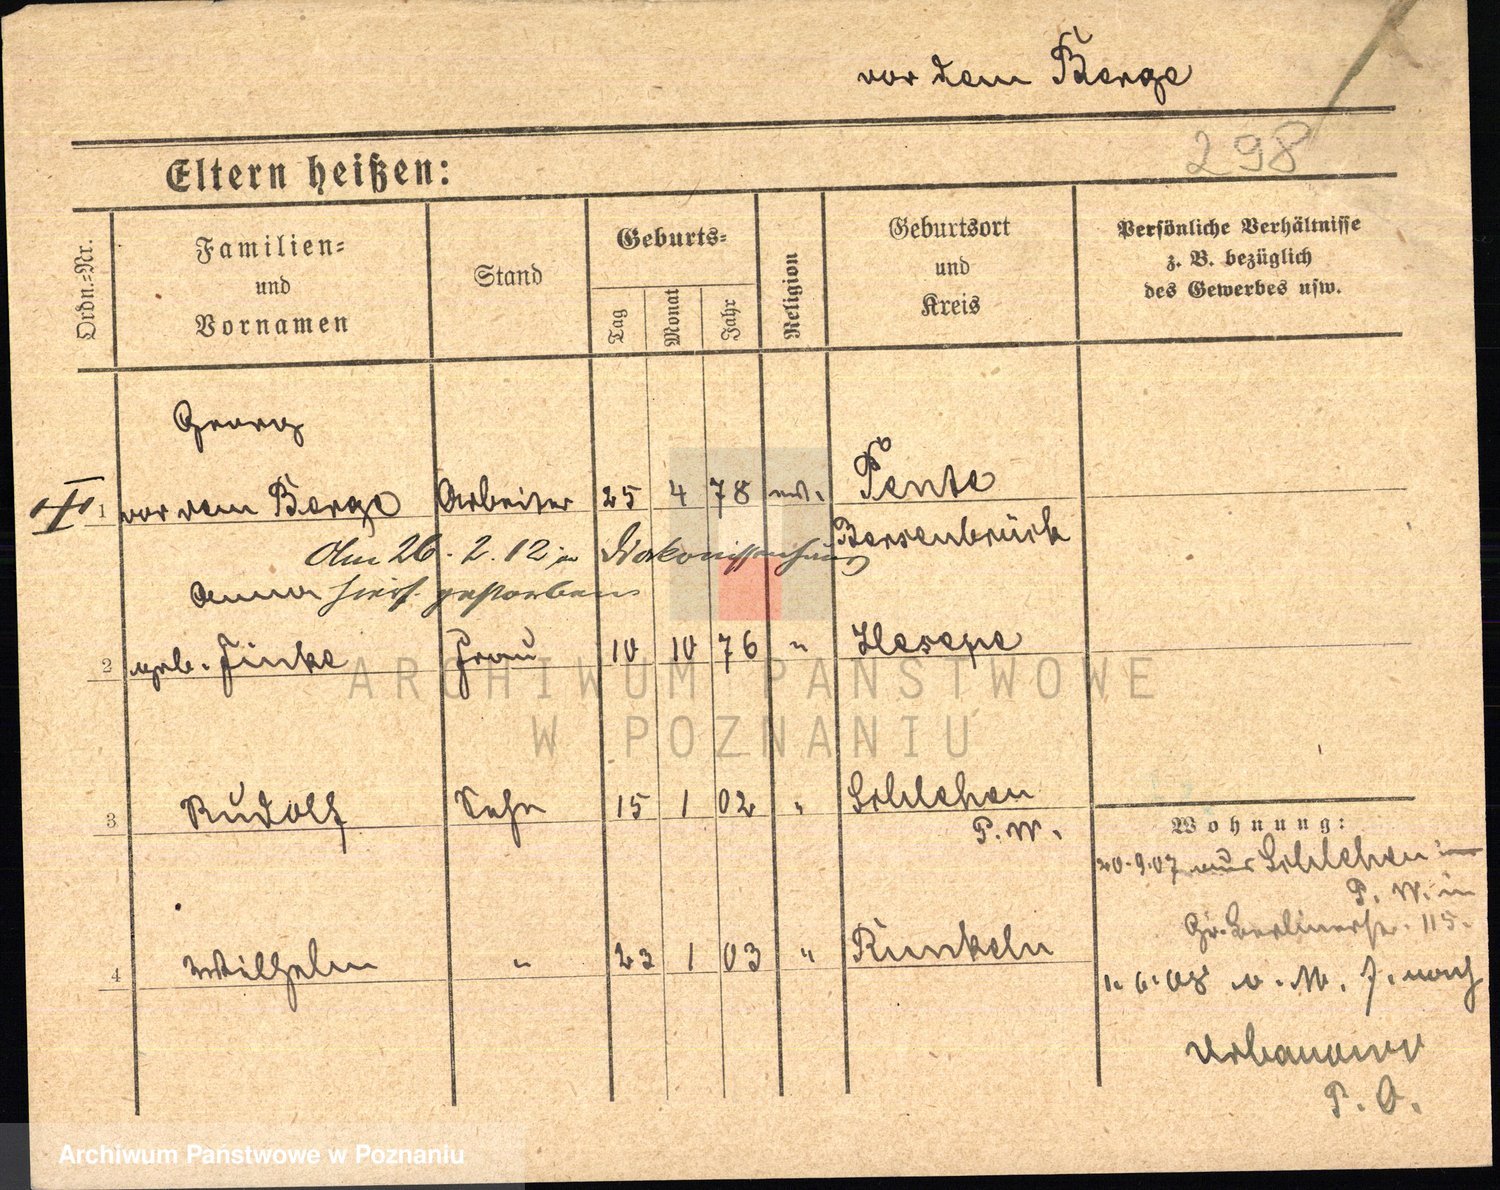 vor dem Berge
298
Eltern heißen:
Ordn.-Nr.
Familien- und Vornamen
Stand
Geburts-
Tag
Monat
Jahr
Religion
Geburtsort und Kreis
Persönliche Verhältnisse
z. B. bezüglich
des Gewerbes usw.
Georg
1 vor dem Berge Arbeiter 25 4 78 ev. Pente
Bersenbrück
Am 26.2.12 im Diakonissenhaus
hies. gestorben
Anna
2 geb. Finke Frau 10 10 76 " Hesepe
3 Rudolf Sohn 15 1 02 " Schlehen
P. W.
4 Wilhelm " 23 1 03 " Runkeln
Wohnung:
20.9.07 aus Schlehen
P. W. in
Gr. Berlinerstr. 115.
1.6.08 v. M. F. nach
Urbanowo
P. O.
ARCHIWUM PAŃSTWOWE
W POZNANIU
Archiwum Państwowe w Poznaniu